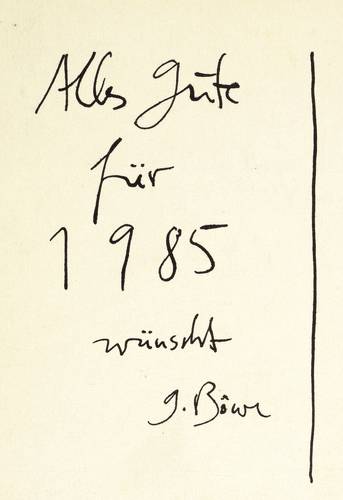 Alles Gute
für
1985
wünscht
G. Böwe